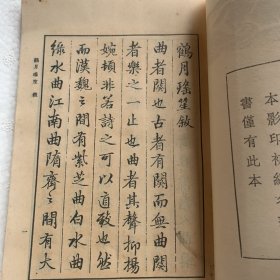 本影印
書僅有此本
鶴月瑤笙敘
曲者闋也古者有闋而無曲闋
者樂之一止也曲者其聲抑揚
婉頓非若詩之可以直致也然
而漢魏之間有紫芝曲白水曲
綠水曲江南曲隋齊之間有大
鶴月瑤笙